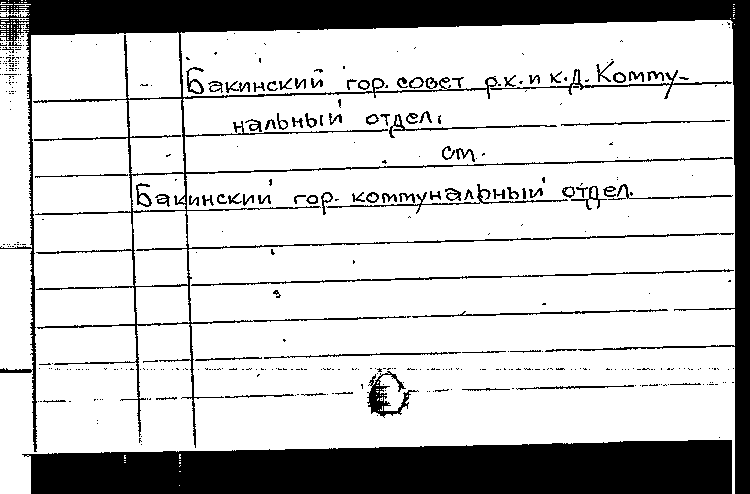 Бакинский гор. совет р.к. и к.д. Комму-
нальный отдел.
см.
Бакинский гор. коммунальный отдел.